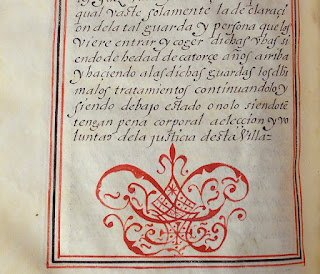 qual vaste solamente la de claraci
on dela tal guarda y persona que los
viere entrar y coger dichas vbas si
endo de hedad de catorçe años arriba
y haciendo alas dichas guardas los dhos
malos tratamientos continuandolo y
siendo debajo estado o no lo siendo tē
tengan pena corporal a eleccion y vo
luntad dela justicia desta Villa